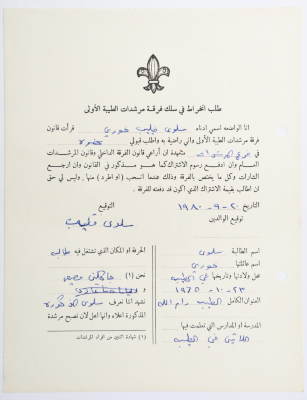 طلب انخراط في سلك فرقة مرشدات الطيبة الأولى
انا الواضعه اسمي ادناه سلوى فيليب خوري قرأت قانون
فرقة مرشدات الطيبة الأولى واني راضية به واطلب قبولي عضوه
في فرقة المرشدات متعهدة ان أراعي قانون الفرقة الداخلي وقانون المرشدات
العام وان ادفع رسوم الاشتراك كما هو مذكور في القانون وان ارجع
الشارات وكل ما يختص بالفرقة وذلك عندما انسحب (او اطرد) منها. وليس لي حق
ان اطالب بقيمة الاشتراك الذي اكون قد دفعته للفرقة.
التاريخ ٢٠-٩-١٩٨٠
التوقيع
توقيع الوالدين
سلوى فيليب
اسم الطالبة سلوى
اسم عائلتها خوري
محل ولادتها وتاريخها في الطيبة
٢٣-١٠-١٩٦٥
العنوان الكامل الطيبة رام الله
المدرسة او المدارس التي تعلمت فيها
اللاتين في الطيبة
الحرفة او المكان الذي تشتغل فيه طالبة
نحن (١)
نشهد أننا نعرف سلوى
المذكورة اعلاه وانها اهل لان تصبح مرشدة
(١) شهادة اثنتين من افراد المرشدات